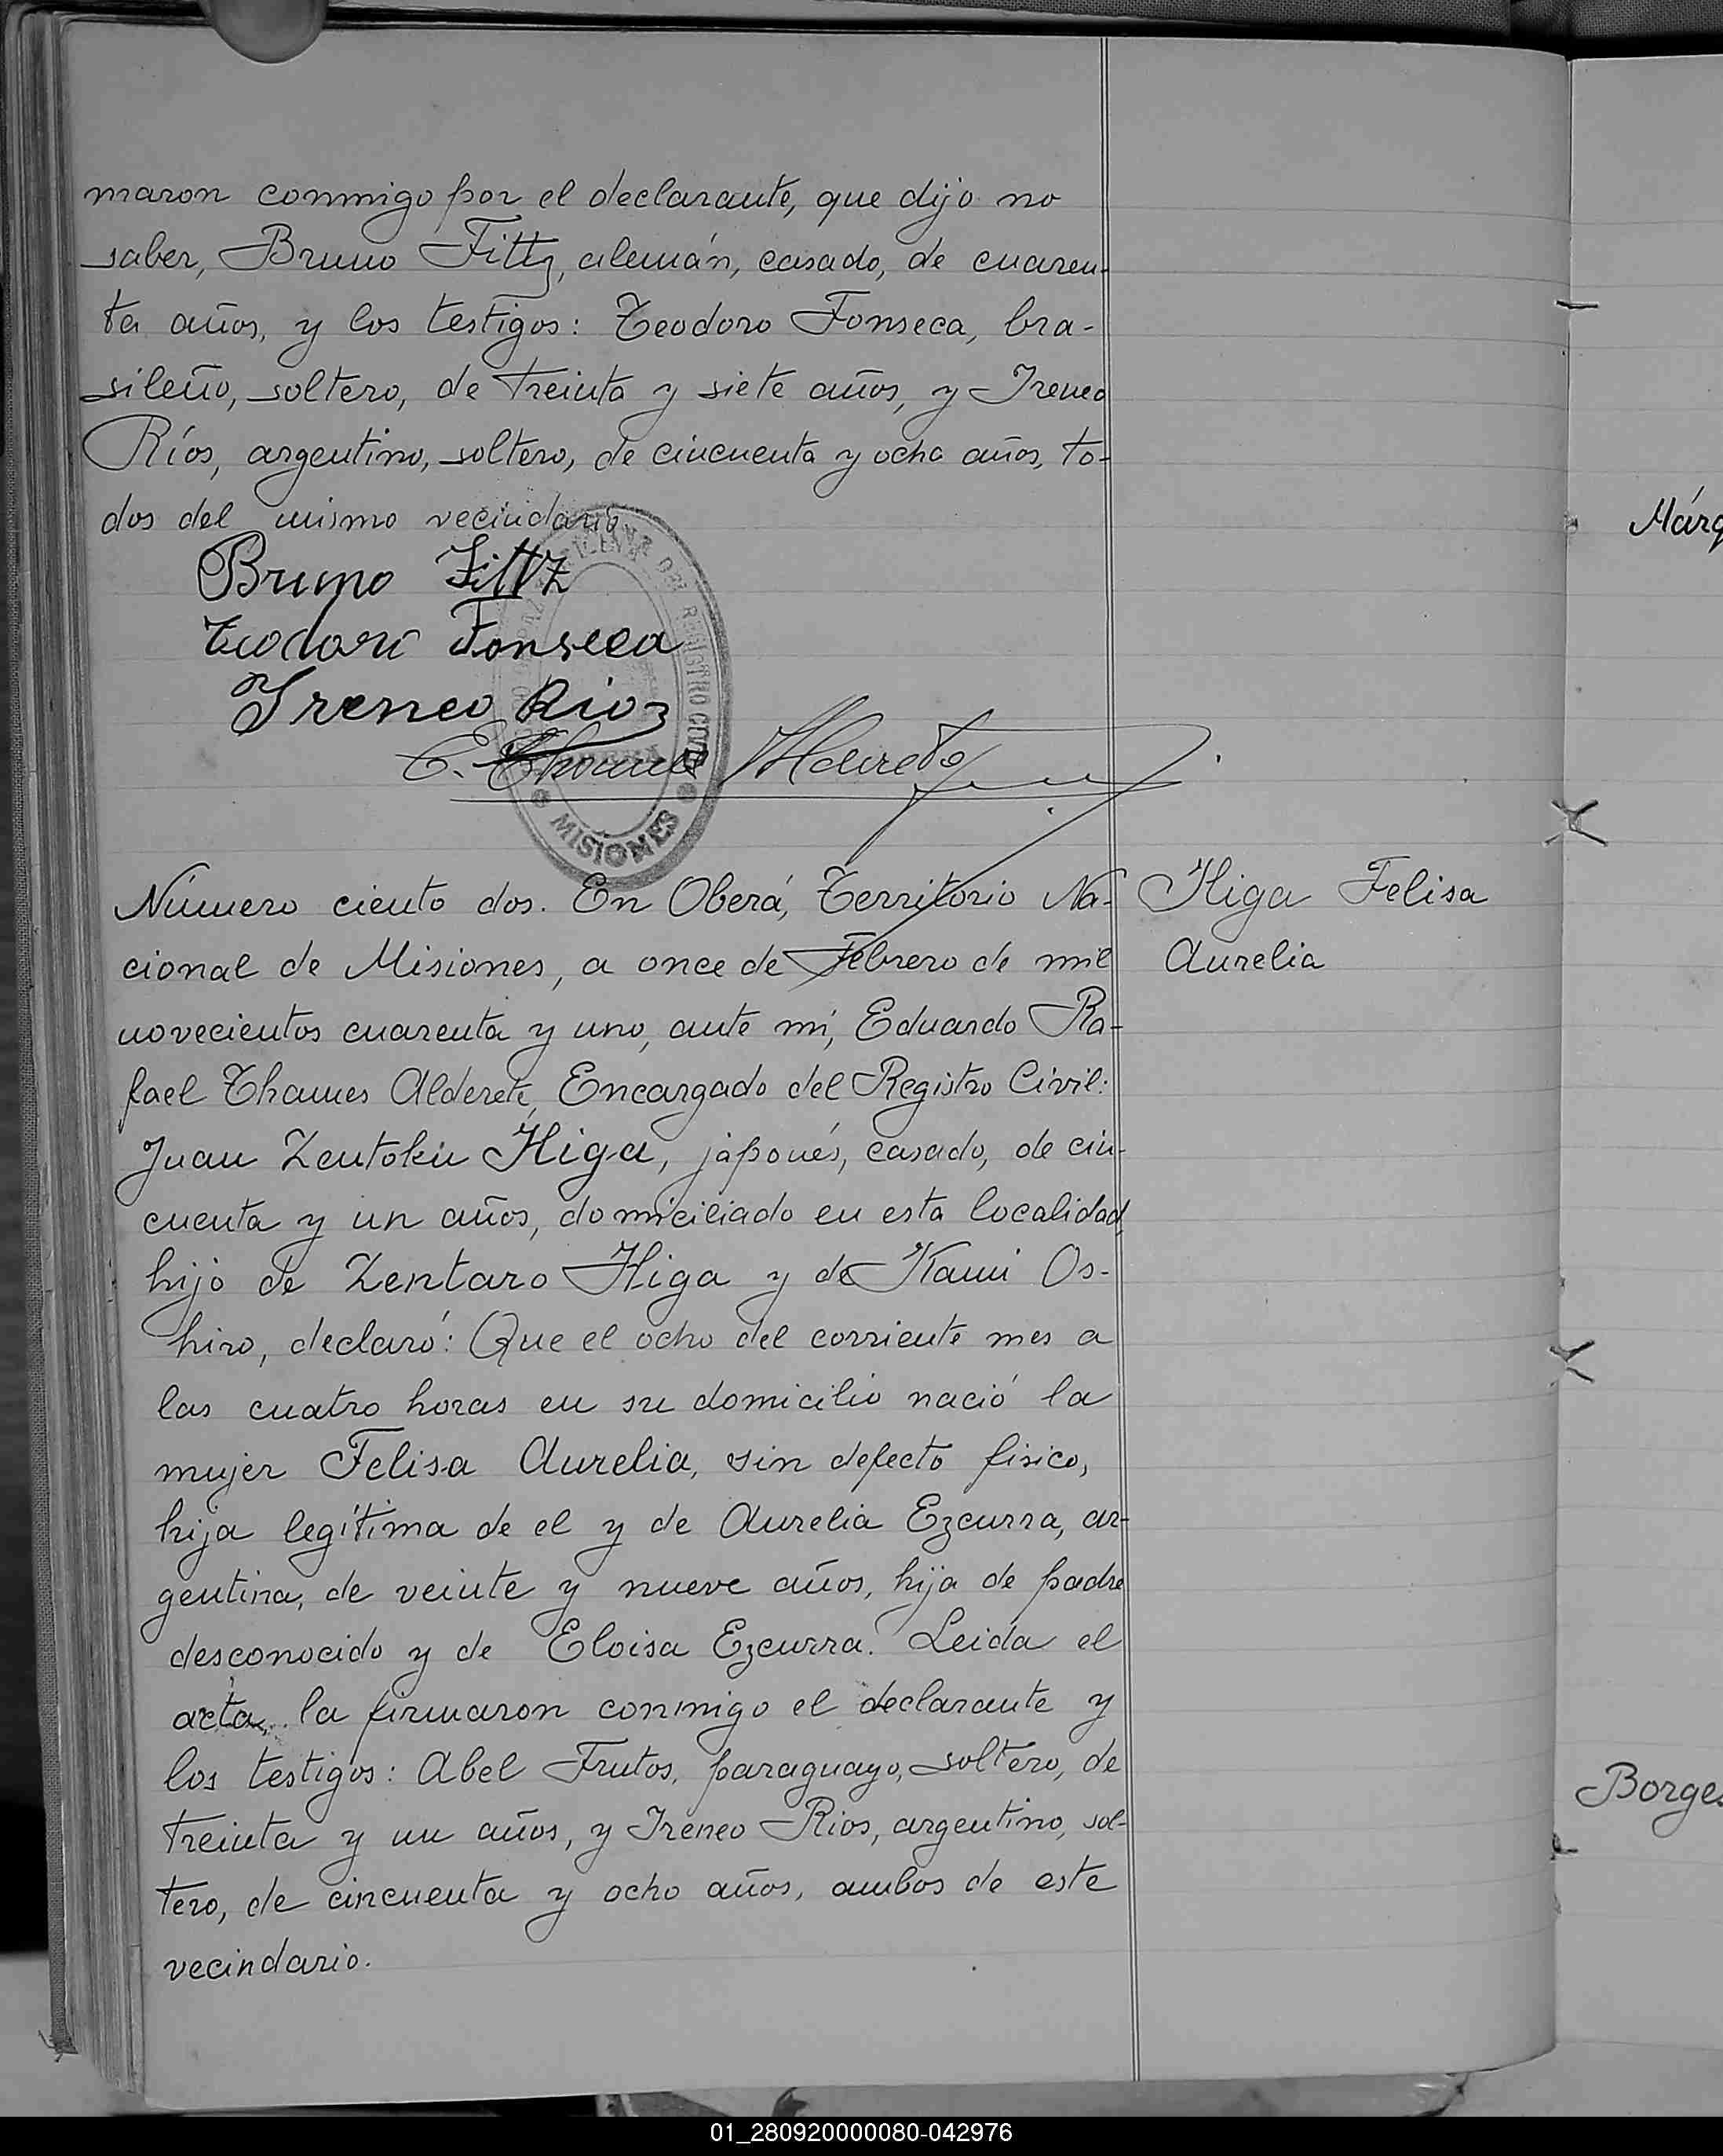 maron conmigo por el declarante, que dijo no
saber, Bruno Fittz, alemán, casado, de cuaren-
ta años, y los testigos: Teodoro Fonseca, bra-
sileño, soltero, de treinta y siete años, y Ireneo
Ríos, argentino, soltero, de cincuenta y ocho años, to-
dos del mismo vecindario
Bruno Fittz
Teodoro Fonseca
Ireneo Rios
E. Thames Alderete
DEL REGISTRO CIVIL
MISIONES
Número ciento dos. En Oberá, Territorio Na-
cional de Misiones, a once de Febrero de mil
novecientos cuarenta y uno, ante mi, Eduardo Ra-
fael Thames Alderete, Encargado del Registro Civil:
Juan Zentokin Higa, japonés, casado, de cin-
cuenta y un años, domiciliado en esta localidad,
hijo de Zentaro Higa y de Kami Os-
hiro, declaró: Que el ocho del corriente mes a
las cuatro horas en su domicilio nació la
mujer Felisa Aurelia, sin defecto fisico,
hija legítima de el y de Aurelia Ezcurra, ar-
gentina, de veinte y nueve años, hija de padre
desconocido y de Eloisa Ezcurra. Leida el
acta, la firmaron conmigo el declarante y
los testigos: Abel Frutos, paraguayo, soltero, de
treinta y un años, y Ireneo Rios, argentino, sol-
tero, de cincuenta y ocho años, ambos de este
vecindario.
Higa Felisa
Aurelia
Márq
Borges
01_280920000080-042976